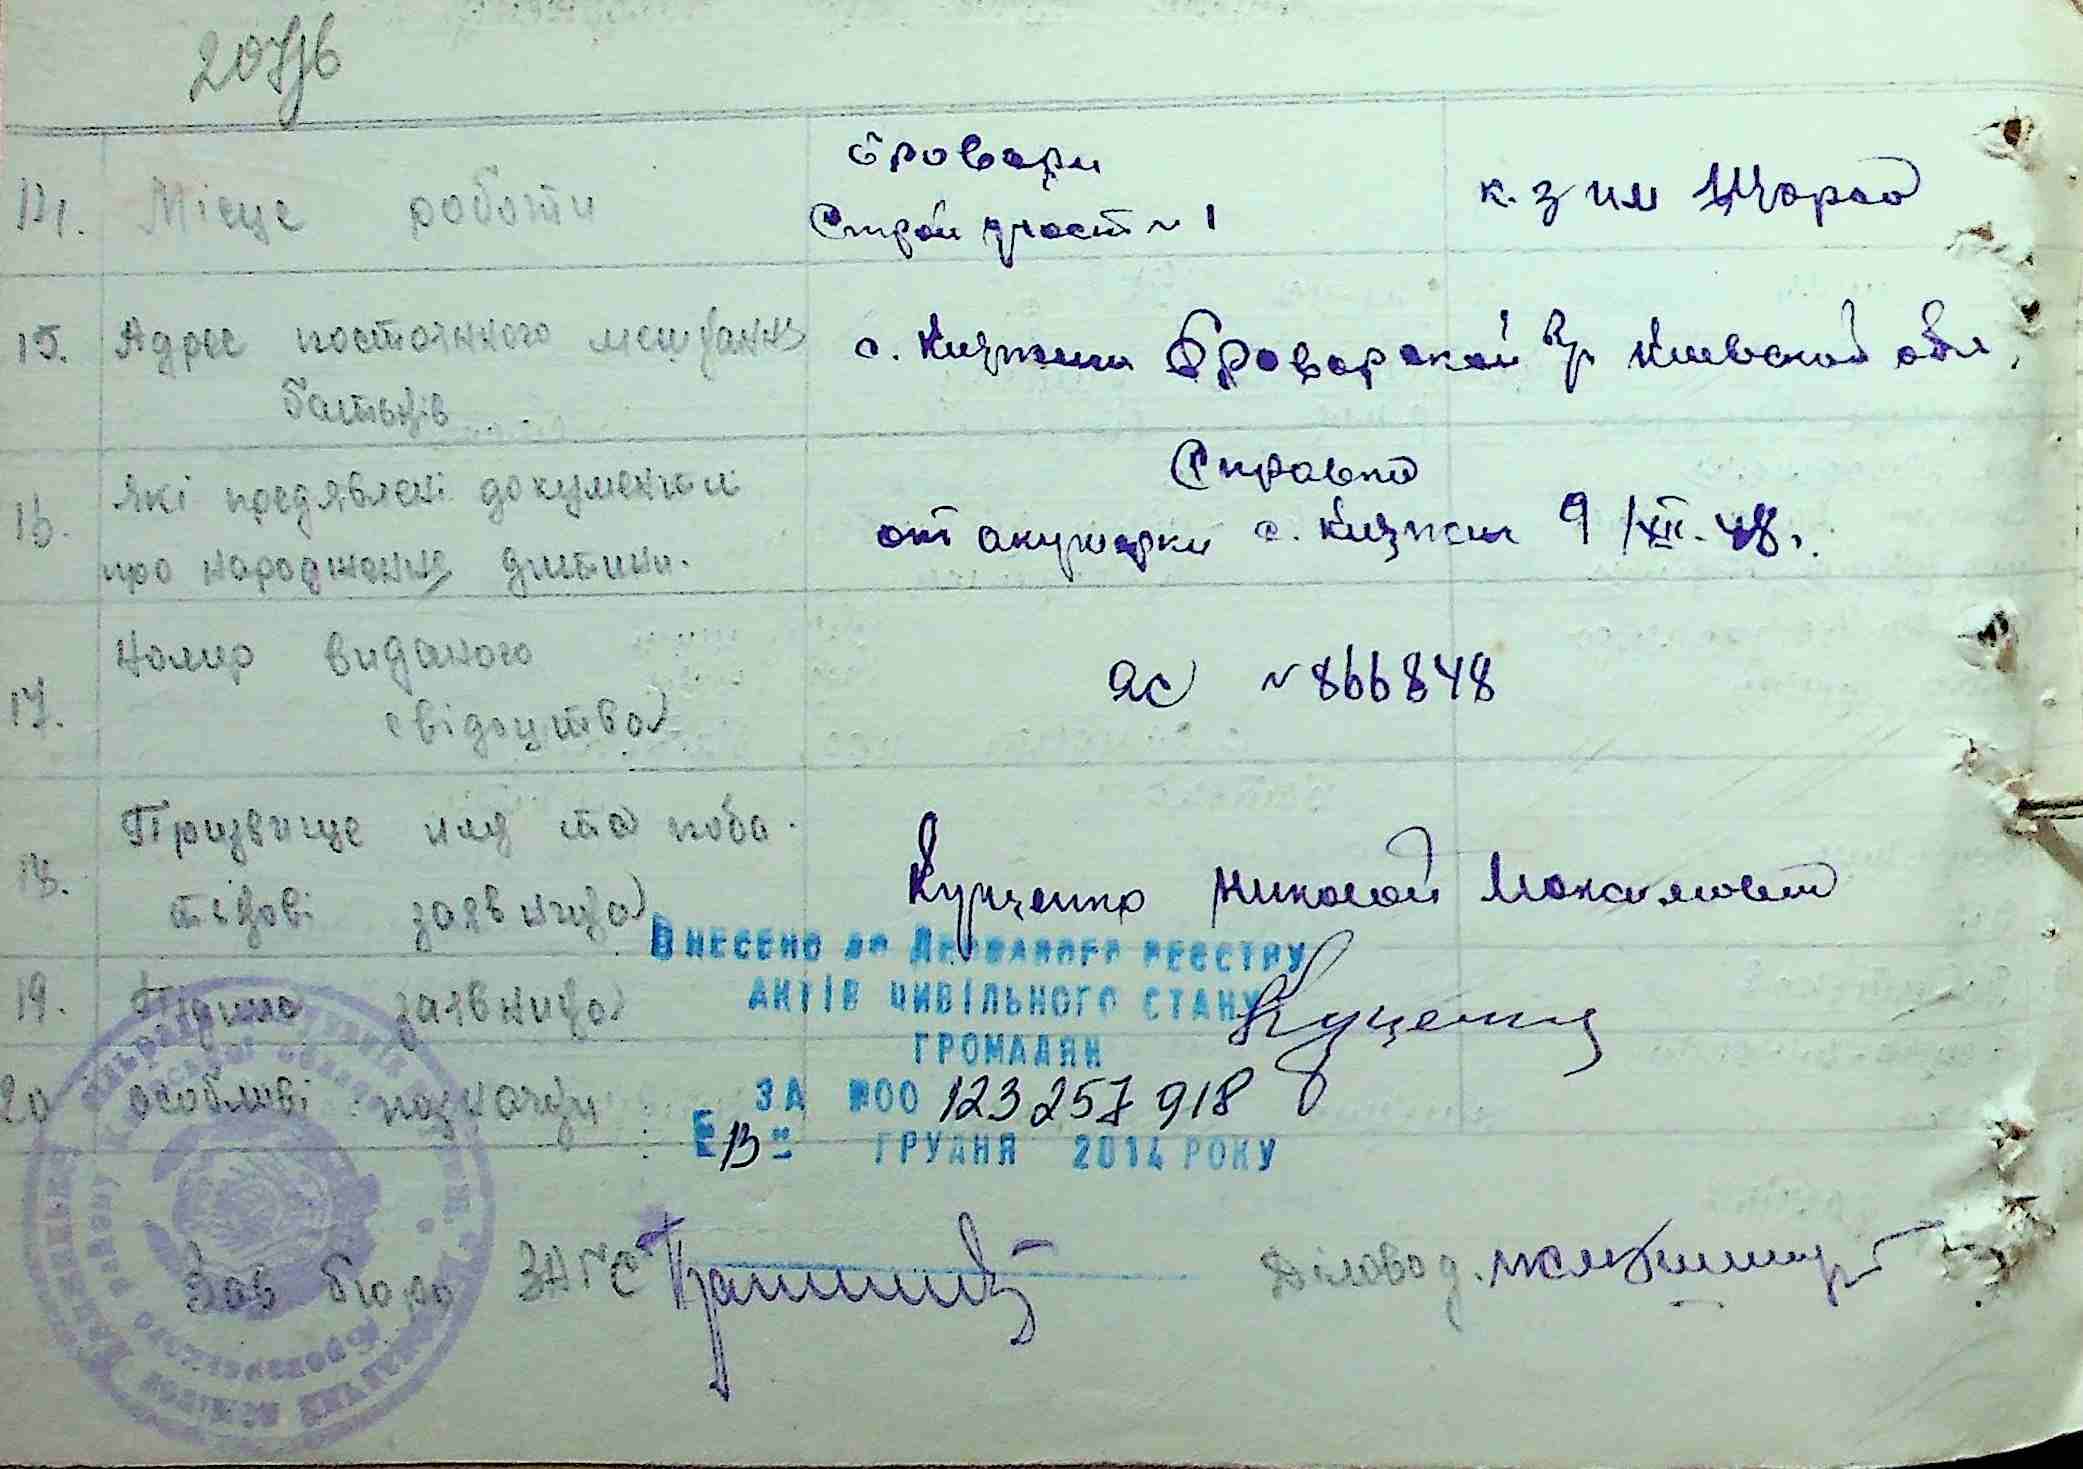 14. Місце роботи
Бровари
Строй участ № 1
к. з им Щорса
15. Адрес постоянного мешканя
батьків
с. Княжичи Броварской р. Киевской обл.
16. Які предявлені документи
про народження дитини.
Справка
от акушерки с. Княжичи 9/XII-48 г.
17. Номир виданого
свідоцтва
ЯС № 866848
18. Призвище имя та поба-
тькові заявника
Куценко Николай Максимович
19. Підпис заявника
Куценко
20 особливі позначки
ВНЕСЕНО ДО ДЕРЖАВНОГО РЕЄСТРУ
АКТІВ ЦИВІЛЬНОГО СТАНУ
ГРОМАДЯН
ЗА №00 123257918
"13" ГРУДНЯ 2014 РОКУ
Зав бюро ЗАГС
Діловод.